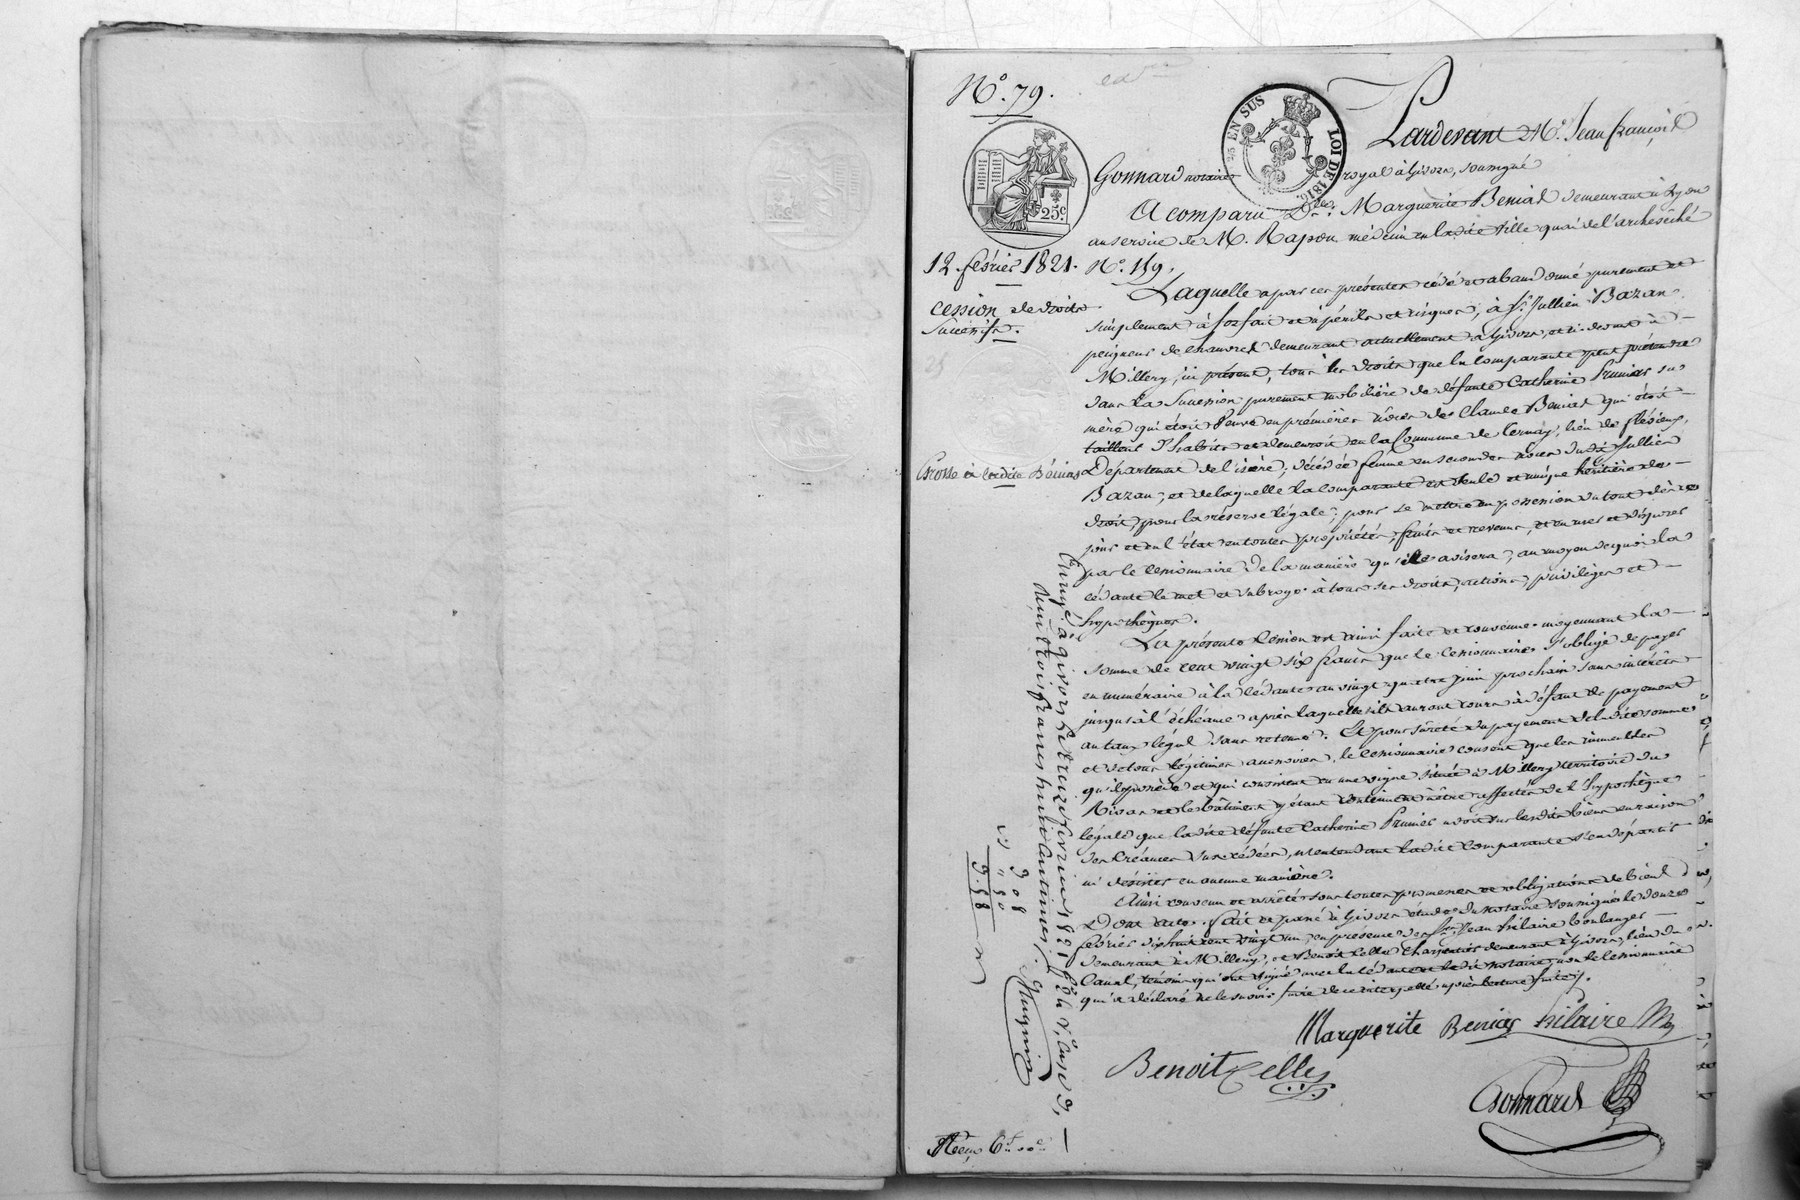 N°. 79.
25 EN SUS
LOI DE 1816.
25c.
Pardevant Me. Jean françois
Gonnard notaire royal à Givors, soussigné
A comparu Dlle. Marguerite Beniat demeurant à Lyon
au service de M. Rapou médecin en ladite ville quai de l'archevêché
12 février 1821. N°. 159.
cession de droits
Successifs.
Grosse à ladite Béniat
Laquelle a par ces présentes cédé et abandonné purement et
simplement à forfait et à périls et risques, à Sr. Jullien Bazan
peigneur de chanvre demeurant actuellement à Givors, et ci-devant à
Millery, ici présent, tous les droits que la comparante peut prétendre
dans la succession purement mobilière de défunte Catherine Prunier sa
mère qui étoit veuve en premières noces de Claude Beniat qui étoit
tailleur d'habits et demeuroit en la Commune de Ternay, lieu de flévieu,
Département de l'isère; décédée femme en secondes noces dudit Jullien
Bazan, et de laquelle la comparante est seule et unique héritière de
droit, pour la réserve légale; pour se mettre en possession du tout dès ce
jour et en l'état en toutes propriétés, fruits et revenus, et en user et disposer
par le cessionnaire de la manière qu'il avisera; au moyen de quoi, la
cédante le met et subroge à tous ses droits, actions, privilèges et
hypothèques.
La présente cession est ainsi faite et convenue moyennant la
somme de cent vingt six francs que le cessionnaire s'oblige de payer
en numéraire à la cédante au vingt quatre juin prochain sans intérêts
jusqu'à l'échéance après laquelle ils auront cours à défaut de payement
au taux légal sans retenue. Et pour sûreté du payement de ladite somme
et de tous légitimes accessoires, le cessionnaire consent que les immeubles
qu'il possède et qui consistent en une vigne située à Millery territoire du
et le bâtiment y étant continuent d'être affectés de l'hypothèque
légale que ladite défunte Catherine Prunier avoit sur lesdits biens en raison
des créances suscédées, n'entendant ladite comparante s'en départir
ni désister en aucune manière.
Ainsi convenu et arrêté sous toutes promesses et obligations de bien
Dont acte. fait et passé à Givors étude du notaire soussigné le douze
février dix huit cent vingt un, en présence de Srs. Jean hilaire boulanger
demeurant à Millery, et Benoit Celle Charpentier demeurant à Givors, lieu du
Canal, témoins qui ont signé avec la cédante et ledit notaire, non le cessionnaire
qui a déclaré ne le savoir faire de ce interpellé après lecture faite.
Enregistré à givors le treize février 1821 fo. 54 vo. case 9,
Reçu trois francs huit centimes.
3 08
" 50
3. 58
Marguerite Benias hilaire
Benoit Celle
Gonnard
Reçu 6f. 00c.